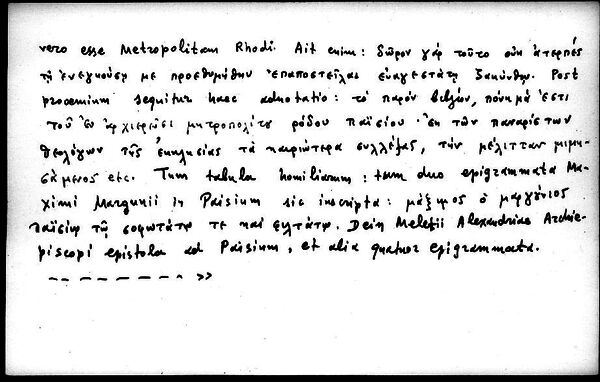 vero esse Metropolitam Rhodi. Ait enim: δῶρον γάρ τοῦτο οὐκ ἀτερπές
τῇ ἐνεγκούσῃ με προεθυμήθην ἐπαποστεῖλαι εὐαγεστάτῃ Ζακύνθῳ. Post
prooemium sequitur haec adnotatio: τό παρόν βιβλίον, πόνημά ἐστι
τοῦ ἐν ἀρχιερεῦσι μητροπολίτου ρόδου παϊσίου · ἐκ τῶν παναρίστων
θεολόγων τῆς ἐκκλησίας τά καιριώτερα συλλέξας, τήν μέλιτταν μιμη-
σάμενος etc. Tum tabula homiliarum; tum duo epigrammata Ma-
ximi Margunii in Paisium sic inscripta: μάξιμος ὁ μαργούνιος
παϊσίῳ τῷ σοφωτάτῳ τε καί φιλτάτῳ. Dein Meletii Alexandriae Archie-
piscopi epistola ad Paisium, et alia quatuor epigrammata.
— — — — — — — — »